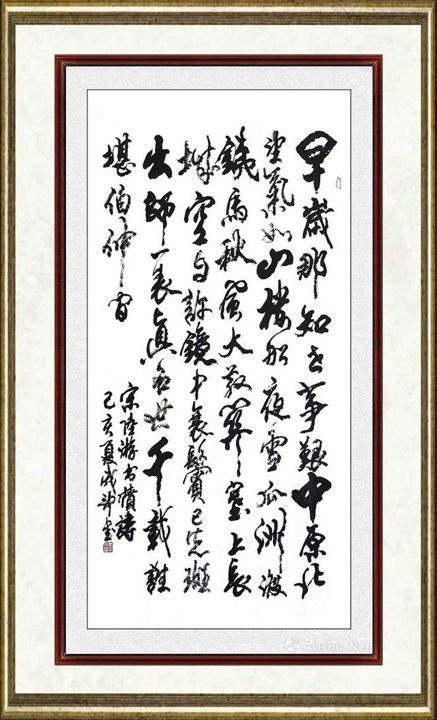 早歲那知世事艱中原北
望氣如山樓船夜雪瓜洲渡
鐵馬秋風大散關塞上長
城空自許鏡中衰鬢已先斑
出師一表真名世千載誰
堪伯仲間
宋陸游书憤詩
己亥夏
Artron.Net